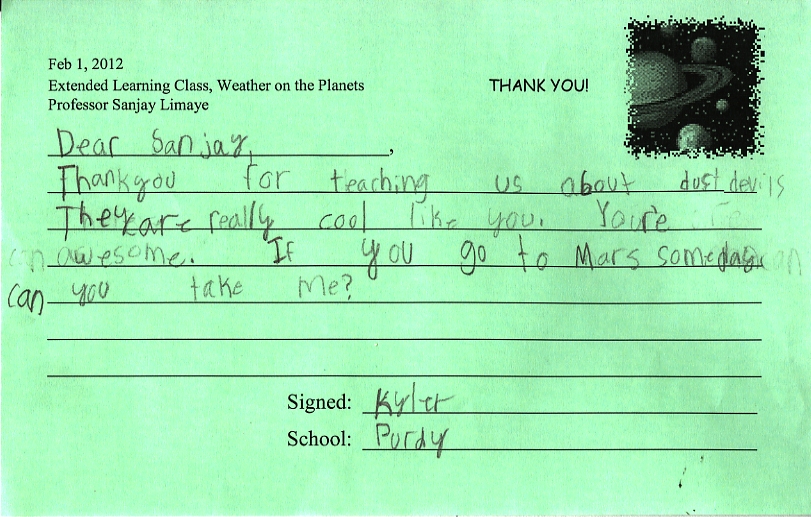 Feb 1, 2012
Extended Learning Class, Weather on the Planets
Professor Sanjay Limaye
THANK YOU!
Dear Sanjay,,
Thankyou for teaching us about dust devils
They are really cool like you. You're
awesome. If you go to Mars someday
can you take me?
Signed: Kyler
School: Purdy